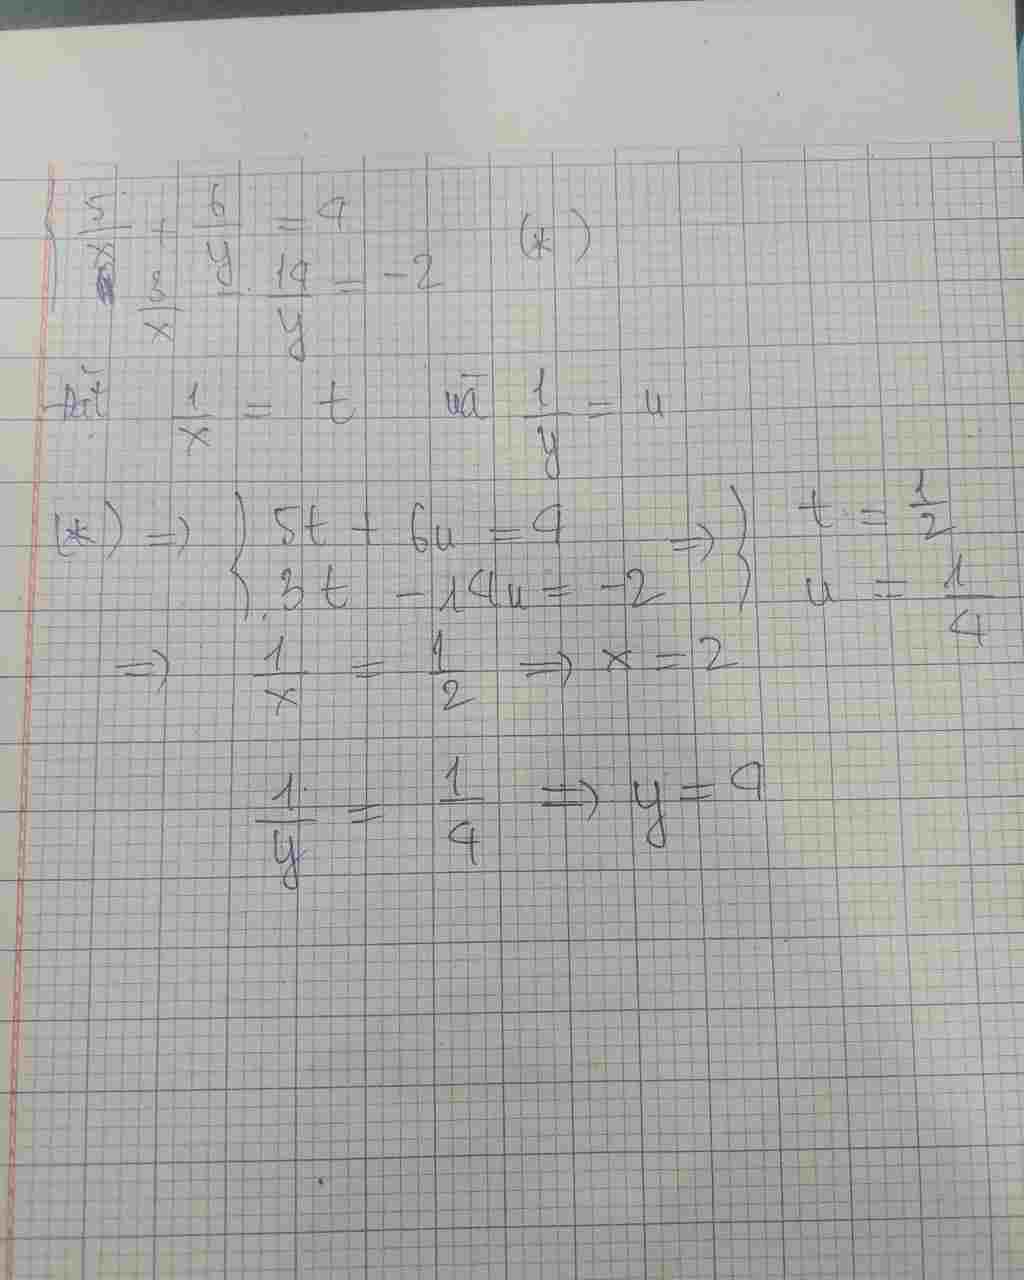 { 5/x + 6/y = 4 (*)
3/x - 14/y = -2
Đặt 1/x = t và 1/y = u
(*) => { 5t + 6u = 4 => { t = 1/2
3t - 14u = -2 u = 1/4
=> 1/x = 1/2 => x = 2
1/y = 1/4 => y = 4